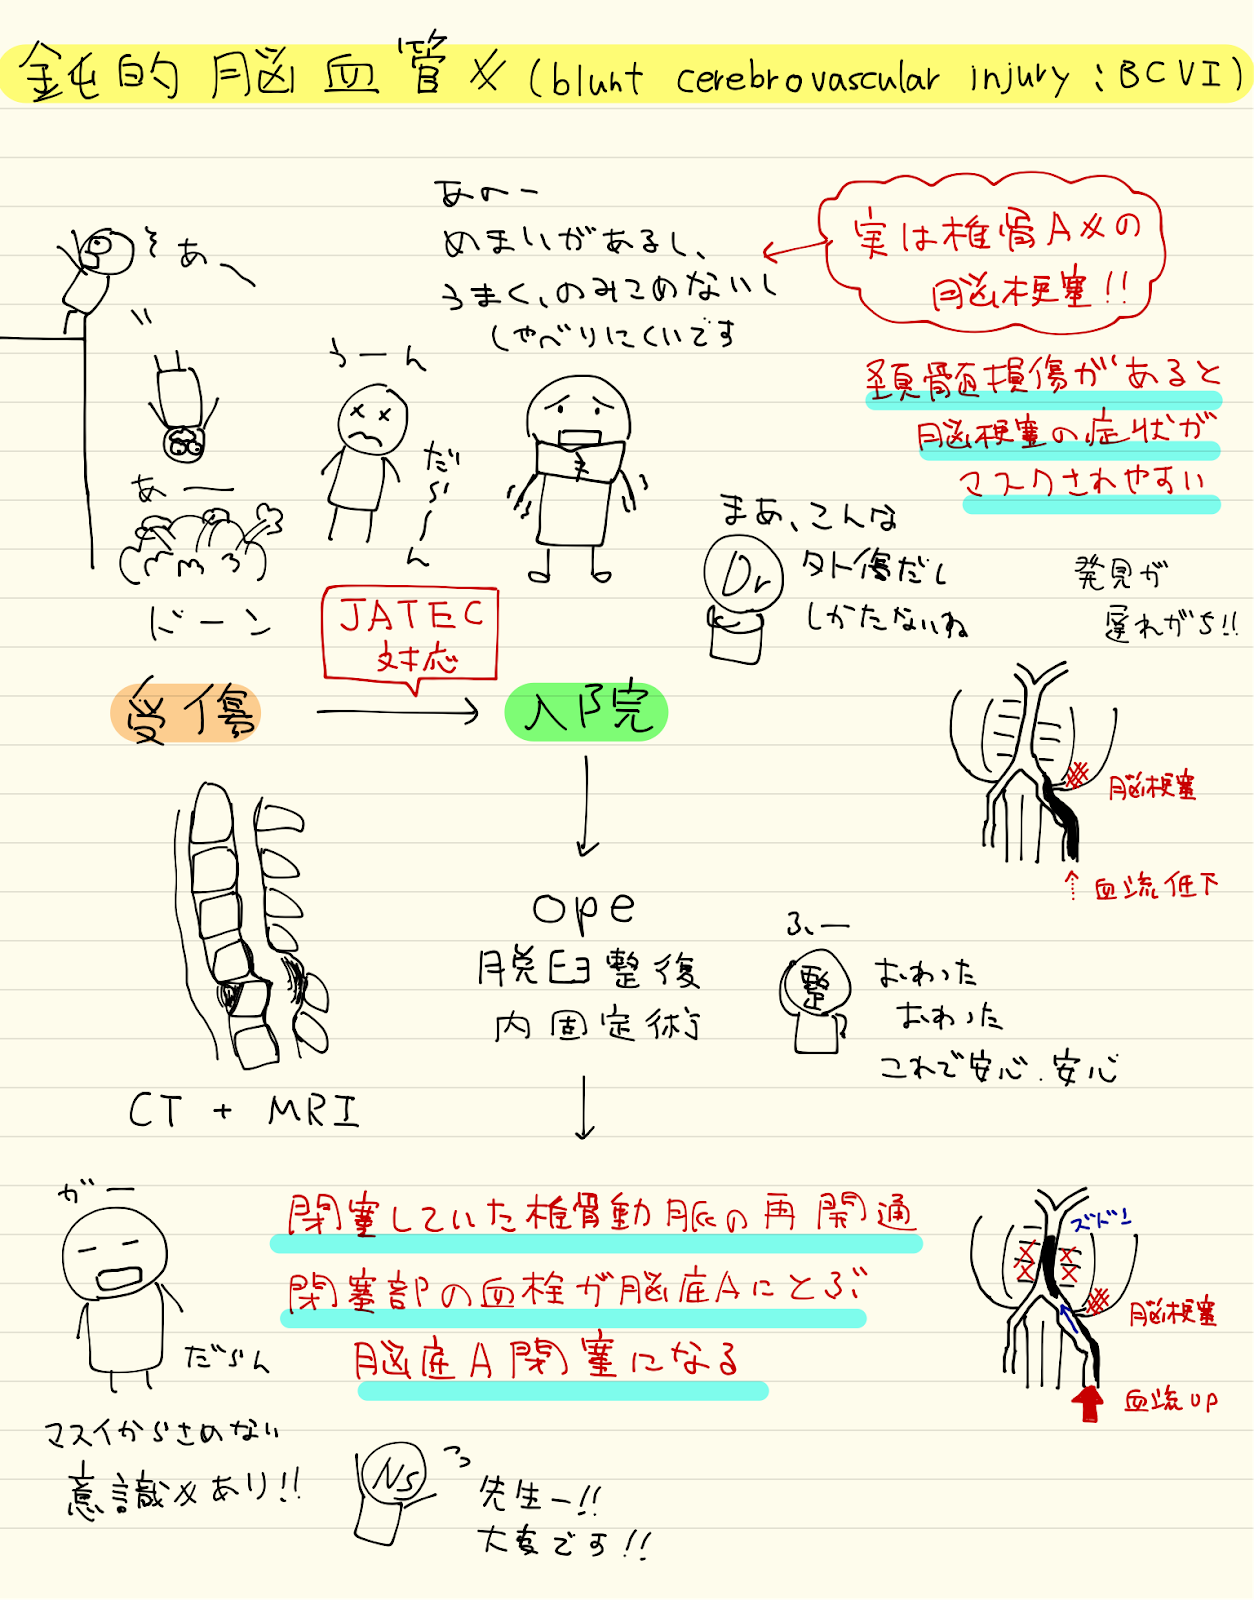 鈍的脳血管メ(blunt cerebrovascular injury:BCVI)
あのー
めまいがあるし、
うまく、のみこめないし
しゃべりにくいです
実は椎骨Aメの
脳梗塞!!
そあ〜
うーん
だら〜ん
あー
ドーン
頚髄損傷があると
脳梗塞の症状が
マスクされやすい
まあ、こんな
外傷だし
しかたないね
Dr
発見が
遅れがち!!
JATEC
対応
受傷
入院
脳梗塞
血流低下
ope
脱臼整復
内固定術
ふぃー
整
おわった
おわった
これで安心.安心
CT + MRI
がー
だらん
マスイからさめない
意識メあり!!
閉塞していた椎骨動脈の再開通
閉塞部の血栓が脳底Aにとぶ
脳底A閉塞になる
ズドン
脳梗塞
血流up
Ns
先生ー!!
大変です!!